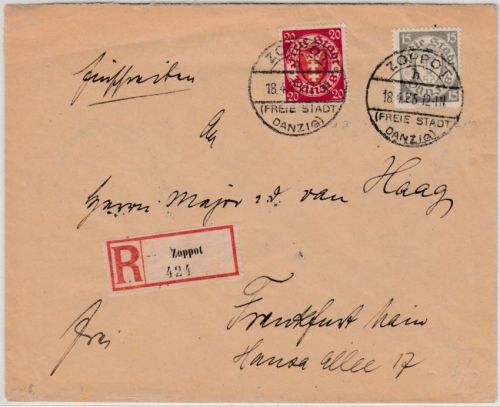 Einschreiben
20 20
20 20
ZOPPOT
18.4
(FREIE STADT
DANZIG)
15 15
ZOPPOT
h
18.4.25.12-1N
(FREIE STADT
DANZIG)
An
Herrn Major a.d. van Haag
R Zoppot
424
Frankfurt Main
Hansa Allee 17
frei